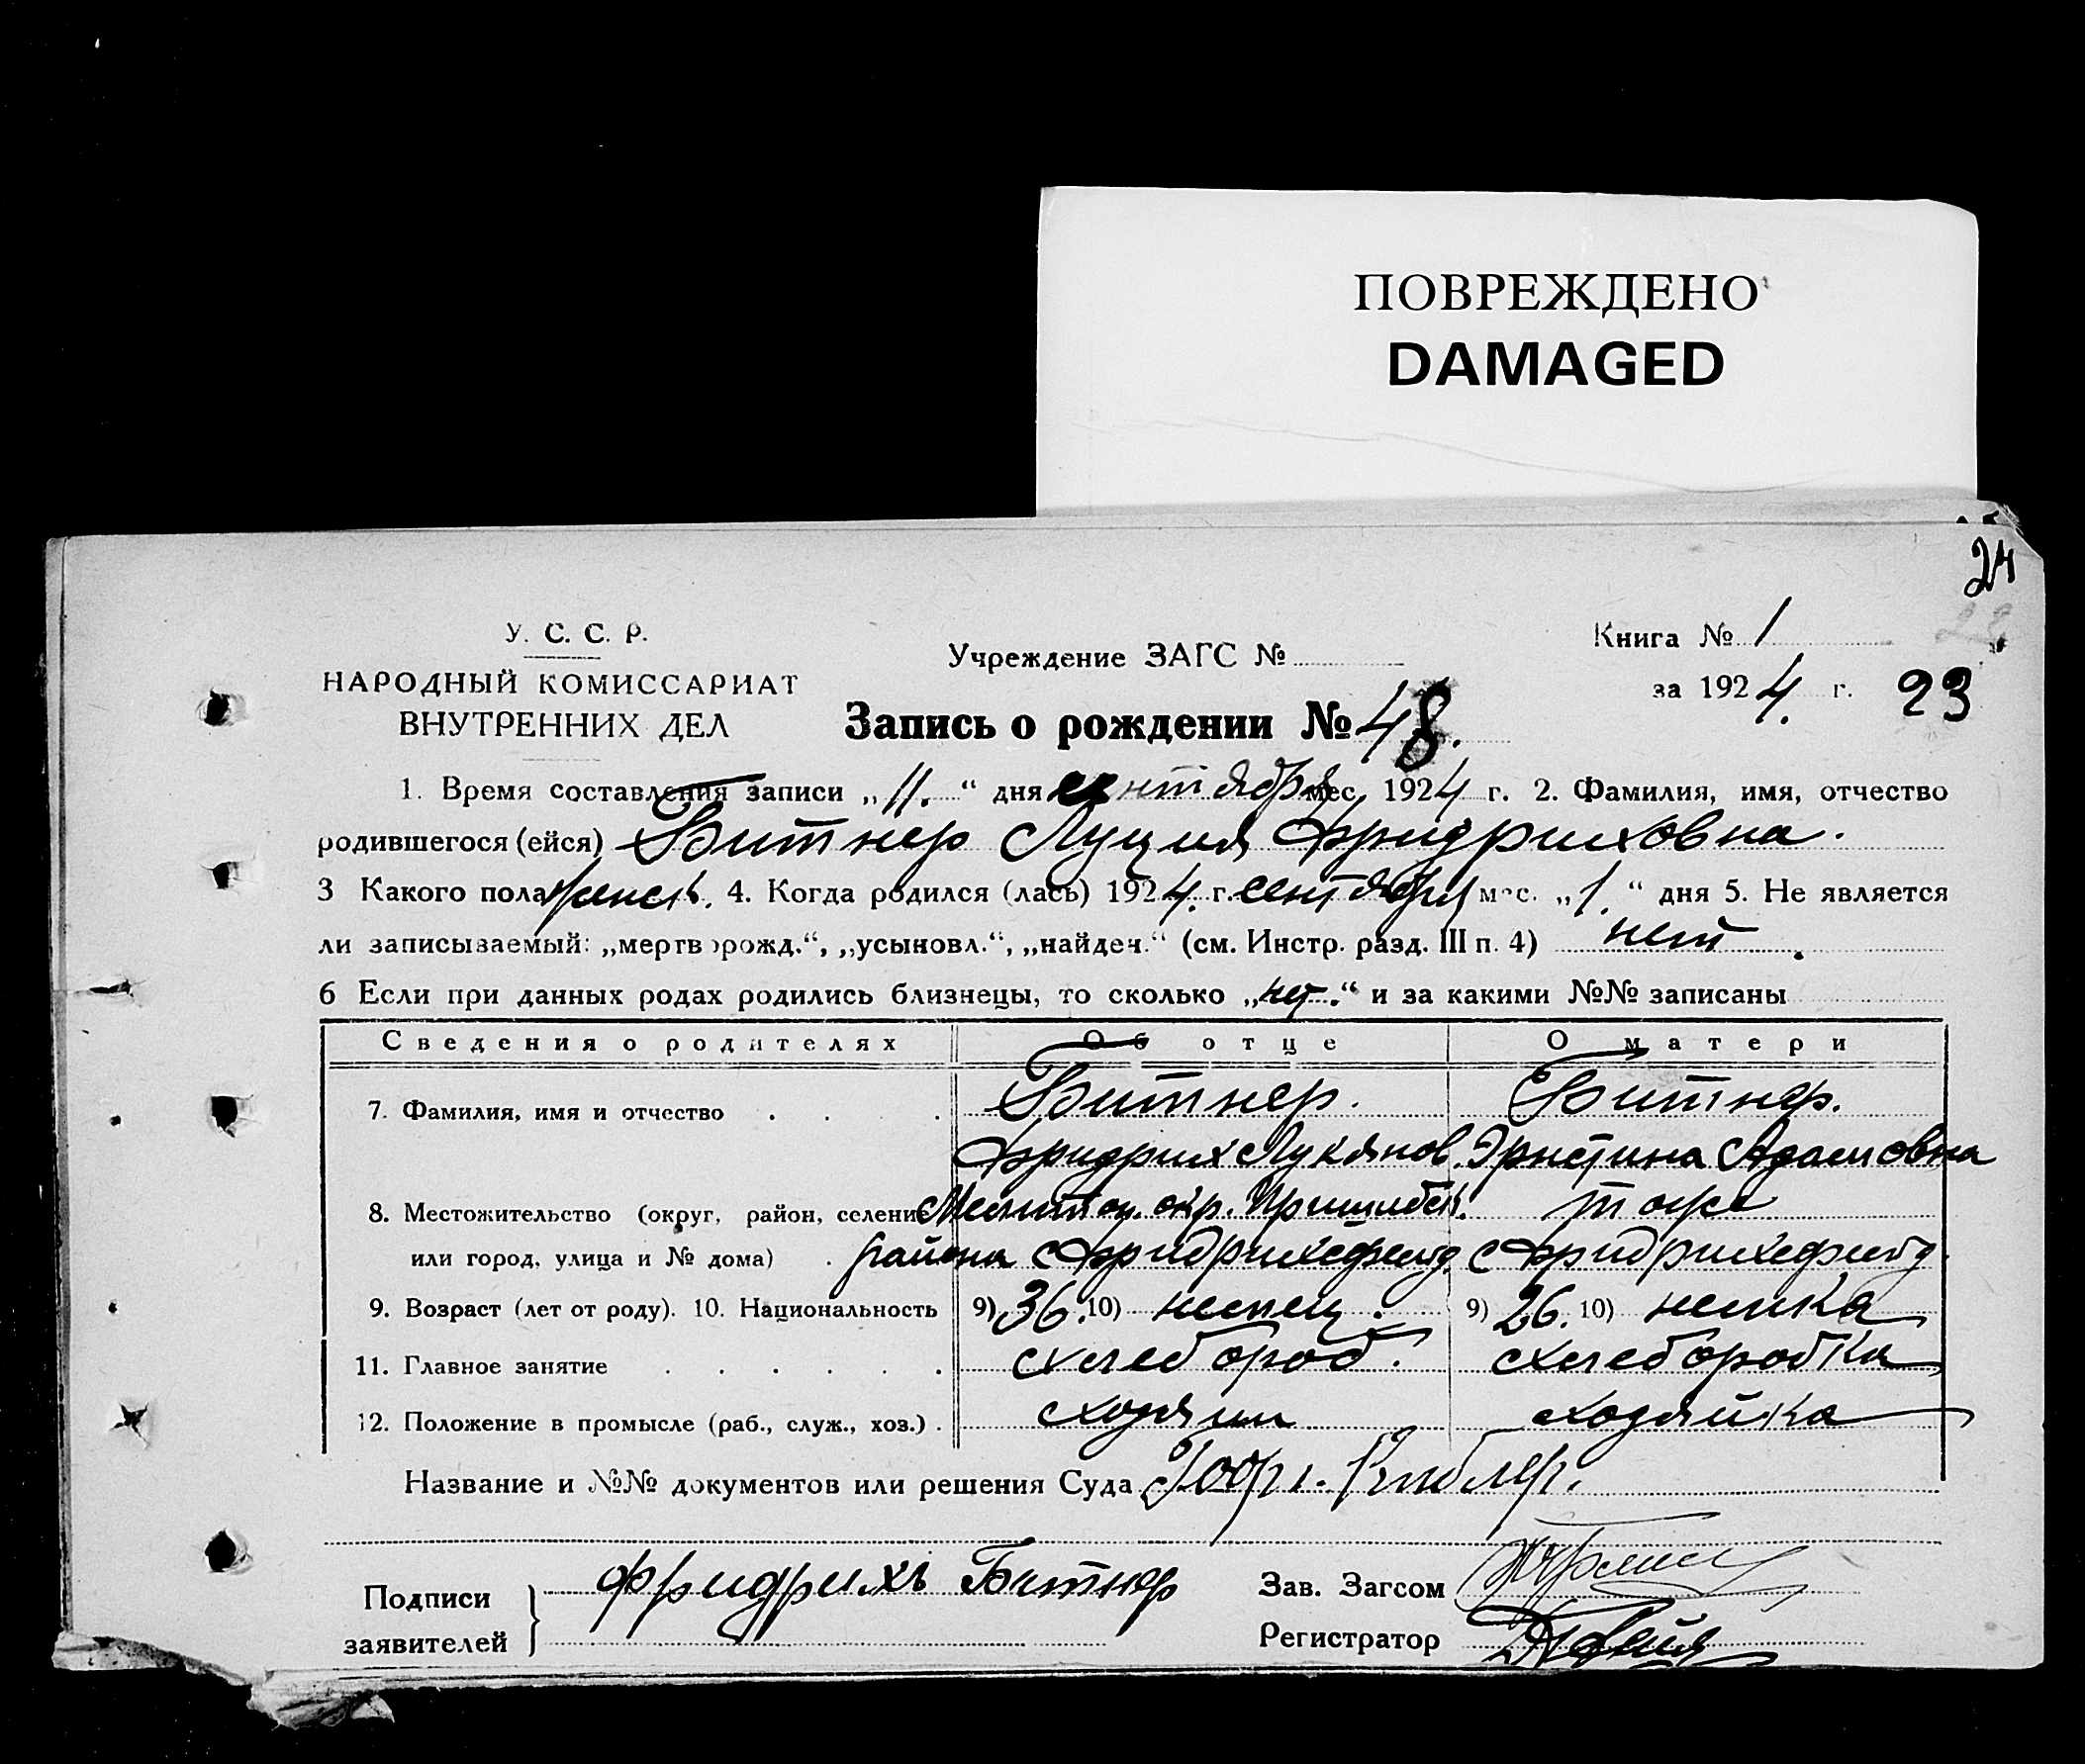 ПОВРЕЖДЕНО
DAMAGED
24
У. С. С. Р.
НАРОДНЫЙ КОМИССАРИАТ
ВНУТРЕННИХ ДЕЛ
Учреждение ЗАГС №
Книга № 1
за 1924. г. 23
Запись о рождении № 48.
1. Время составления записи „11.“ дня сентября мес. 1924 г. 2. Фамилия, имя, отчество
родившегося (ейся) Битнер Луция Фридриховна.
3 Какого пола женск. 4. Когда родился (лась) 1924. г. сентября мес. „1.“ дня 5. Не является
ли записываемый: „мертворожд.“, „усыновл.“, „найден.“ (см. Инстр. разд. III п. 4) нет.
6 Если при данных родах родились близнецы, то сколько „нет.“ и за какими №№ записаны
Сведения о родителях Об отце О матери
7. Фамилия, имя и отчество . . . Битнер. Битнер.
Фридрих Лукянов. Христина Адамовна
8. Местожительство (округ, район, селение Мелитоп. окр. Пришибск. тоже
или город, улица и № дома) . района с Фридрихсфельд. с Фридрихсфельд.
9. Возраст (лет от роду). 10. Национальность 9) 36. 10) немец. 9) 26. 10) немка
11. Главное занятие . . . . . . хлебороб. хлеборобка
12. Положение в промысле (раб., служ., хоз.) . хозяин хозяйка
Название и №№ документов или решения Суда
Подписи заявителей } Фридрихъ Битнер
Зав. Загсом
Регистратор